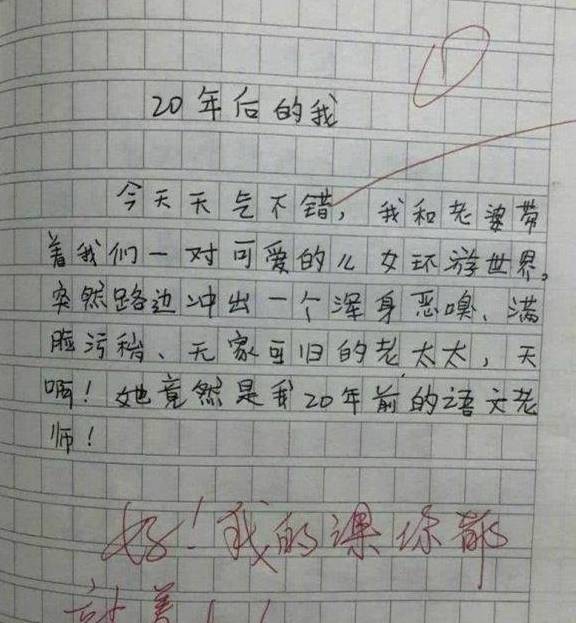 20年后的我
今天天气不错，我和老婆带
着我们一对可爱的儿女环游世界。
突然路边冲出一个浑身恶嗅、满
脸污秽、无家可归的老太太，天
啊！她竟然是我20年前的语文老
师！
好！我的课你都
站着！！